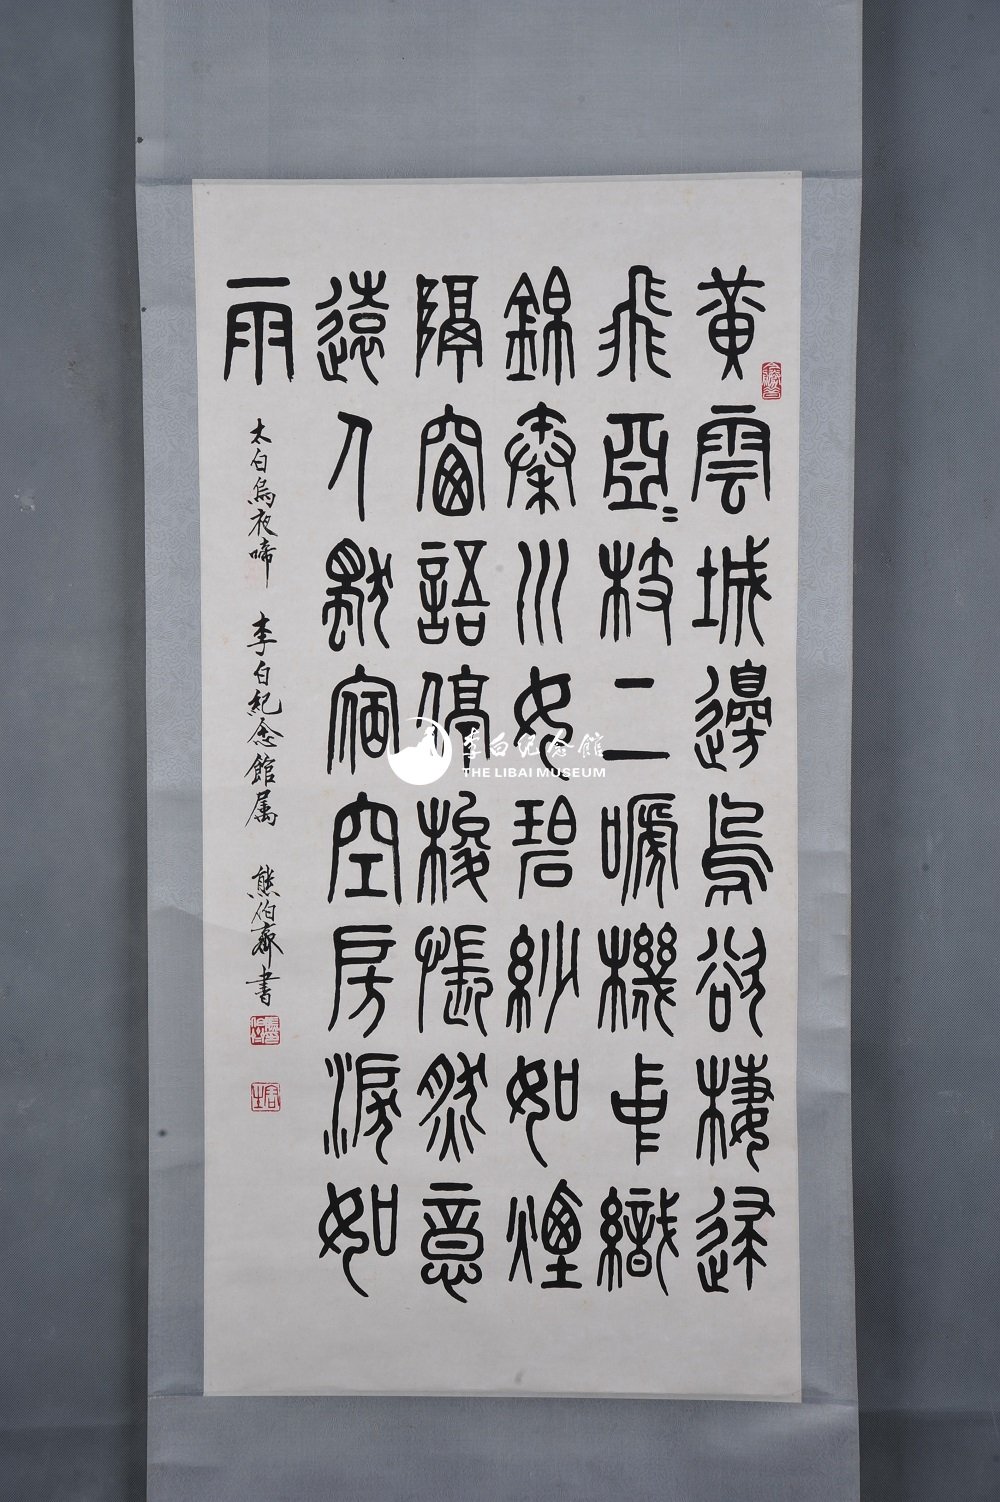 黄雲城邊烏欲棲歸
飛亞〻枝上嗁機中織
錦秦川女碧紗如煙
隔窗語停梭悵然意
遠人獨宿空房淚如
雨
太白烏夜啼 李白紀念館属 熊伯齊書
李白纪念館
THE LIBAI MUSEUM